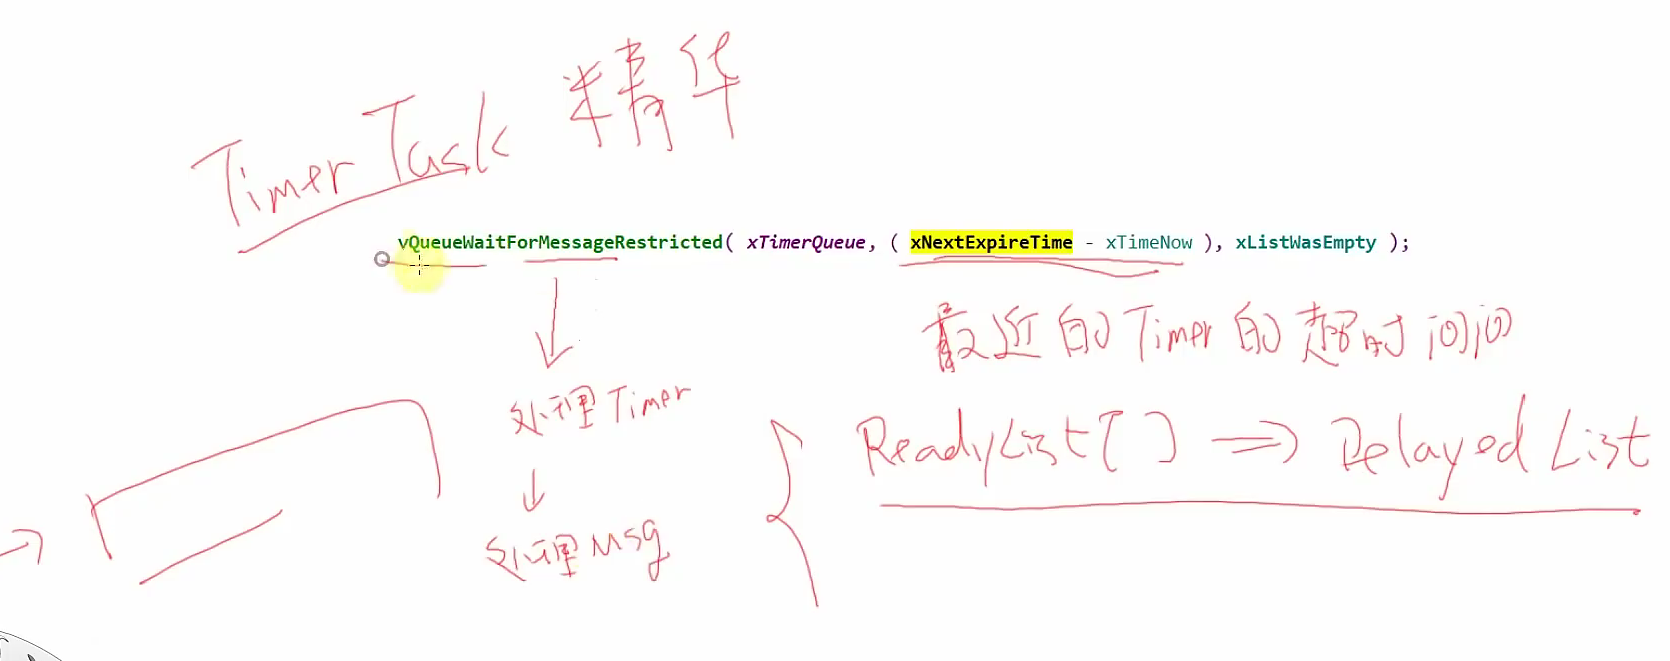 Timer Task 精华
vQueueWaitForMessageRestricted( xTimerQueue, ( xNextExpireTime - xTimeNow ), xListWasEmpty );
最近的Timer的超时间间
处理Timer
ReadyList[ ] => Delayed List
处理Msg